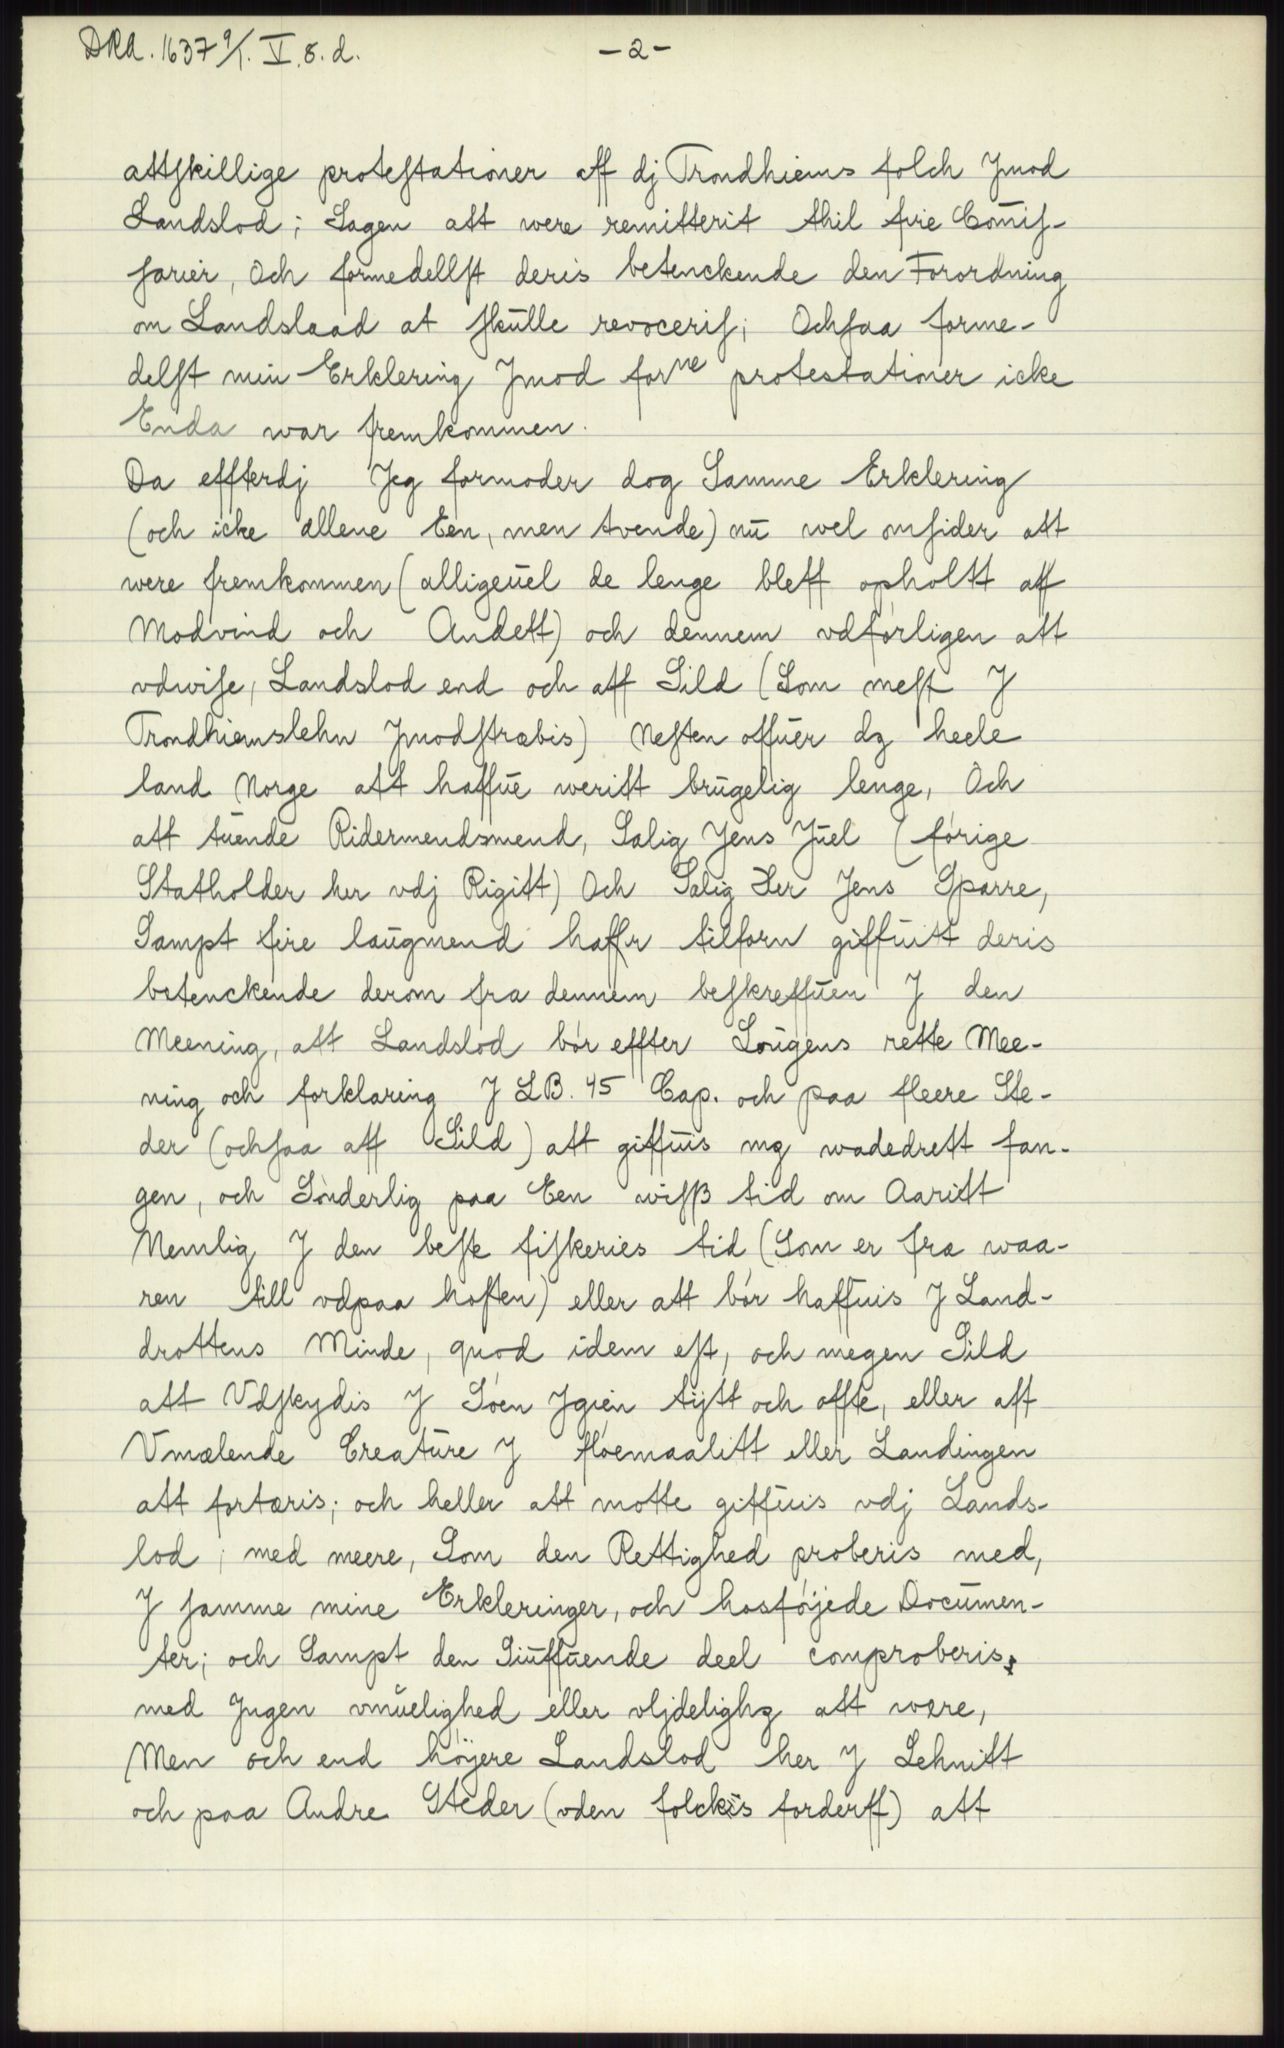 DRA. 1637 9/1. V. 8. d.
- 2 -
attskillige protestationer aff dj Trondhiems folch Jmod
Landslod; Sagen att were remitterit thil fire Com̄is-
sarier, Och formedellst deris betenckende den Forordning
om Landslaad at skulle revoceris; Ochsaa forme-
delst min Erklering Jmod forne protestationer icke
Enda war fremkommen.
Da effterdj Jeg formoder dog Samme Erklering
(och icke allene Een, men tvende) nū wel omsider att
were fremkommen (alligeūel de lenge bleff opholtt aff
Modvind och Andett) och dennem vdførligen att
vdwise, Landslod end och aff Sild (Som mest J
Trondhiemslehn Jmodstræbis) Nesten offūer dz heele
land Norge att haffūe weritt brūgelig lenge, Och
att tūende Ridermendsmend, Salig Jens Jūel (førige
Statholder her vdj Rigitt) Och Salig Her Jens Sparre,
Sampt fire laūgmend haffr tilforn giffūitt deris
betenckende derom fra dennem beskreffūen J den
Meening, att Landslod bør effter Loūgens rette Mee-
ning och forklaring J LB. 45 Cap. och paa fleere Ste-
der (ochsaa aff Sild) att giffūis mz wadedrett fan-
gen, och Sønderlig paa Een wisß tid om Aaritt
Nemlig J den beste fiskeries tid (Som er fra waa-
ren till vdpaa høsten) eller att bør haffūis J Land-
drottens Minde, quod idem est, och megen Sild
att Vdskydis J Søen Jgien tijtt och offte, eller aff
Vmælende Creatūre J fløemaalitt eller Landingen
att fortæris; och heller att motte giffūis vdj Lands-
lod; med meere, Som den Rettighed proberis med,
J samme mine Erkleringer, och hosføjede Documen-
ter; och Sampt den Siūffūende deel comproberis,
med Jngen vmūelighed eller vljdelighz att wære,
Men och end højere Landslod her J Lehnitt
och paa Andre Steder (vden folckis forderff) att